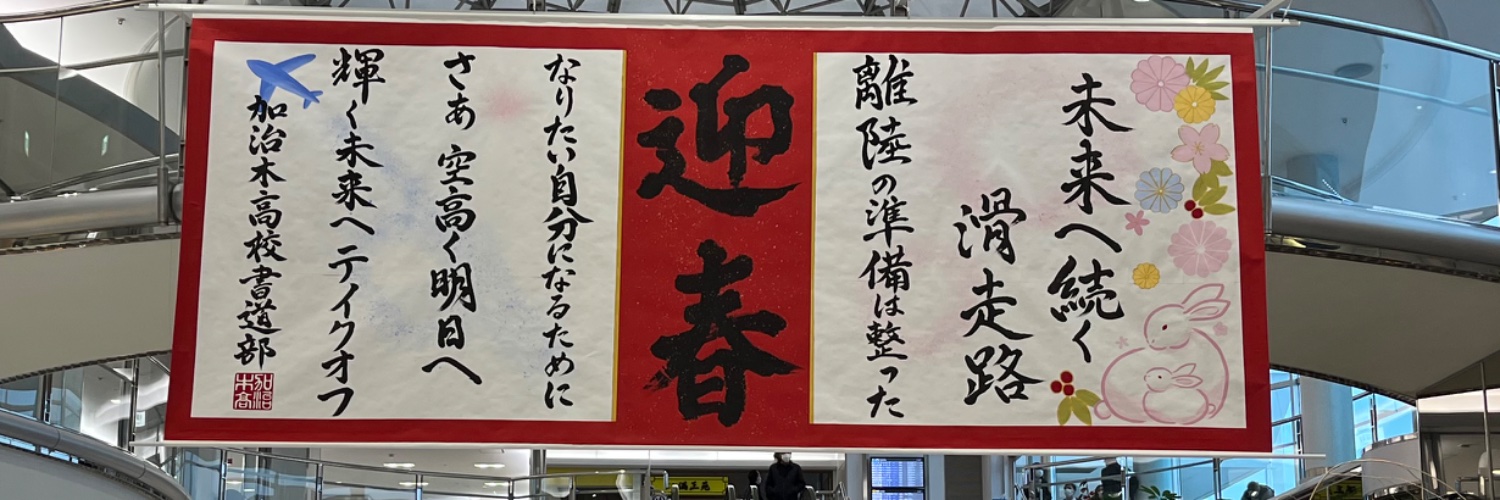 未来へ続く
滑走路
離陸の準備は整った
迎春
なりたい自分になるために
さあ 空高く明日へ
輝く未来へテイクオフ
加治木高校書道部
加治
木高